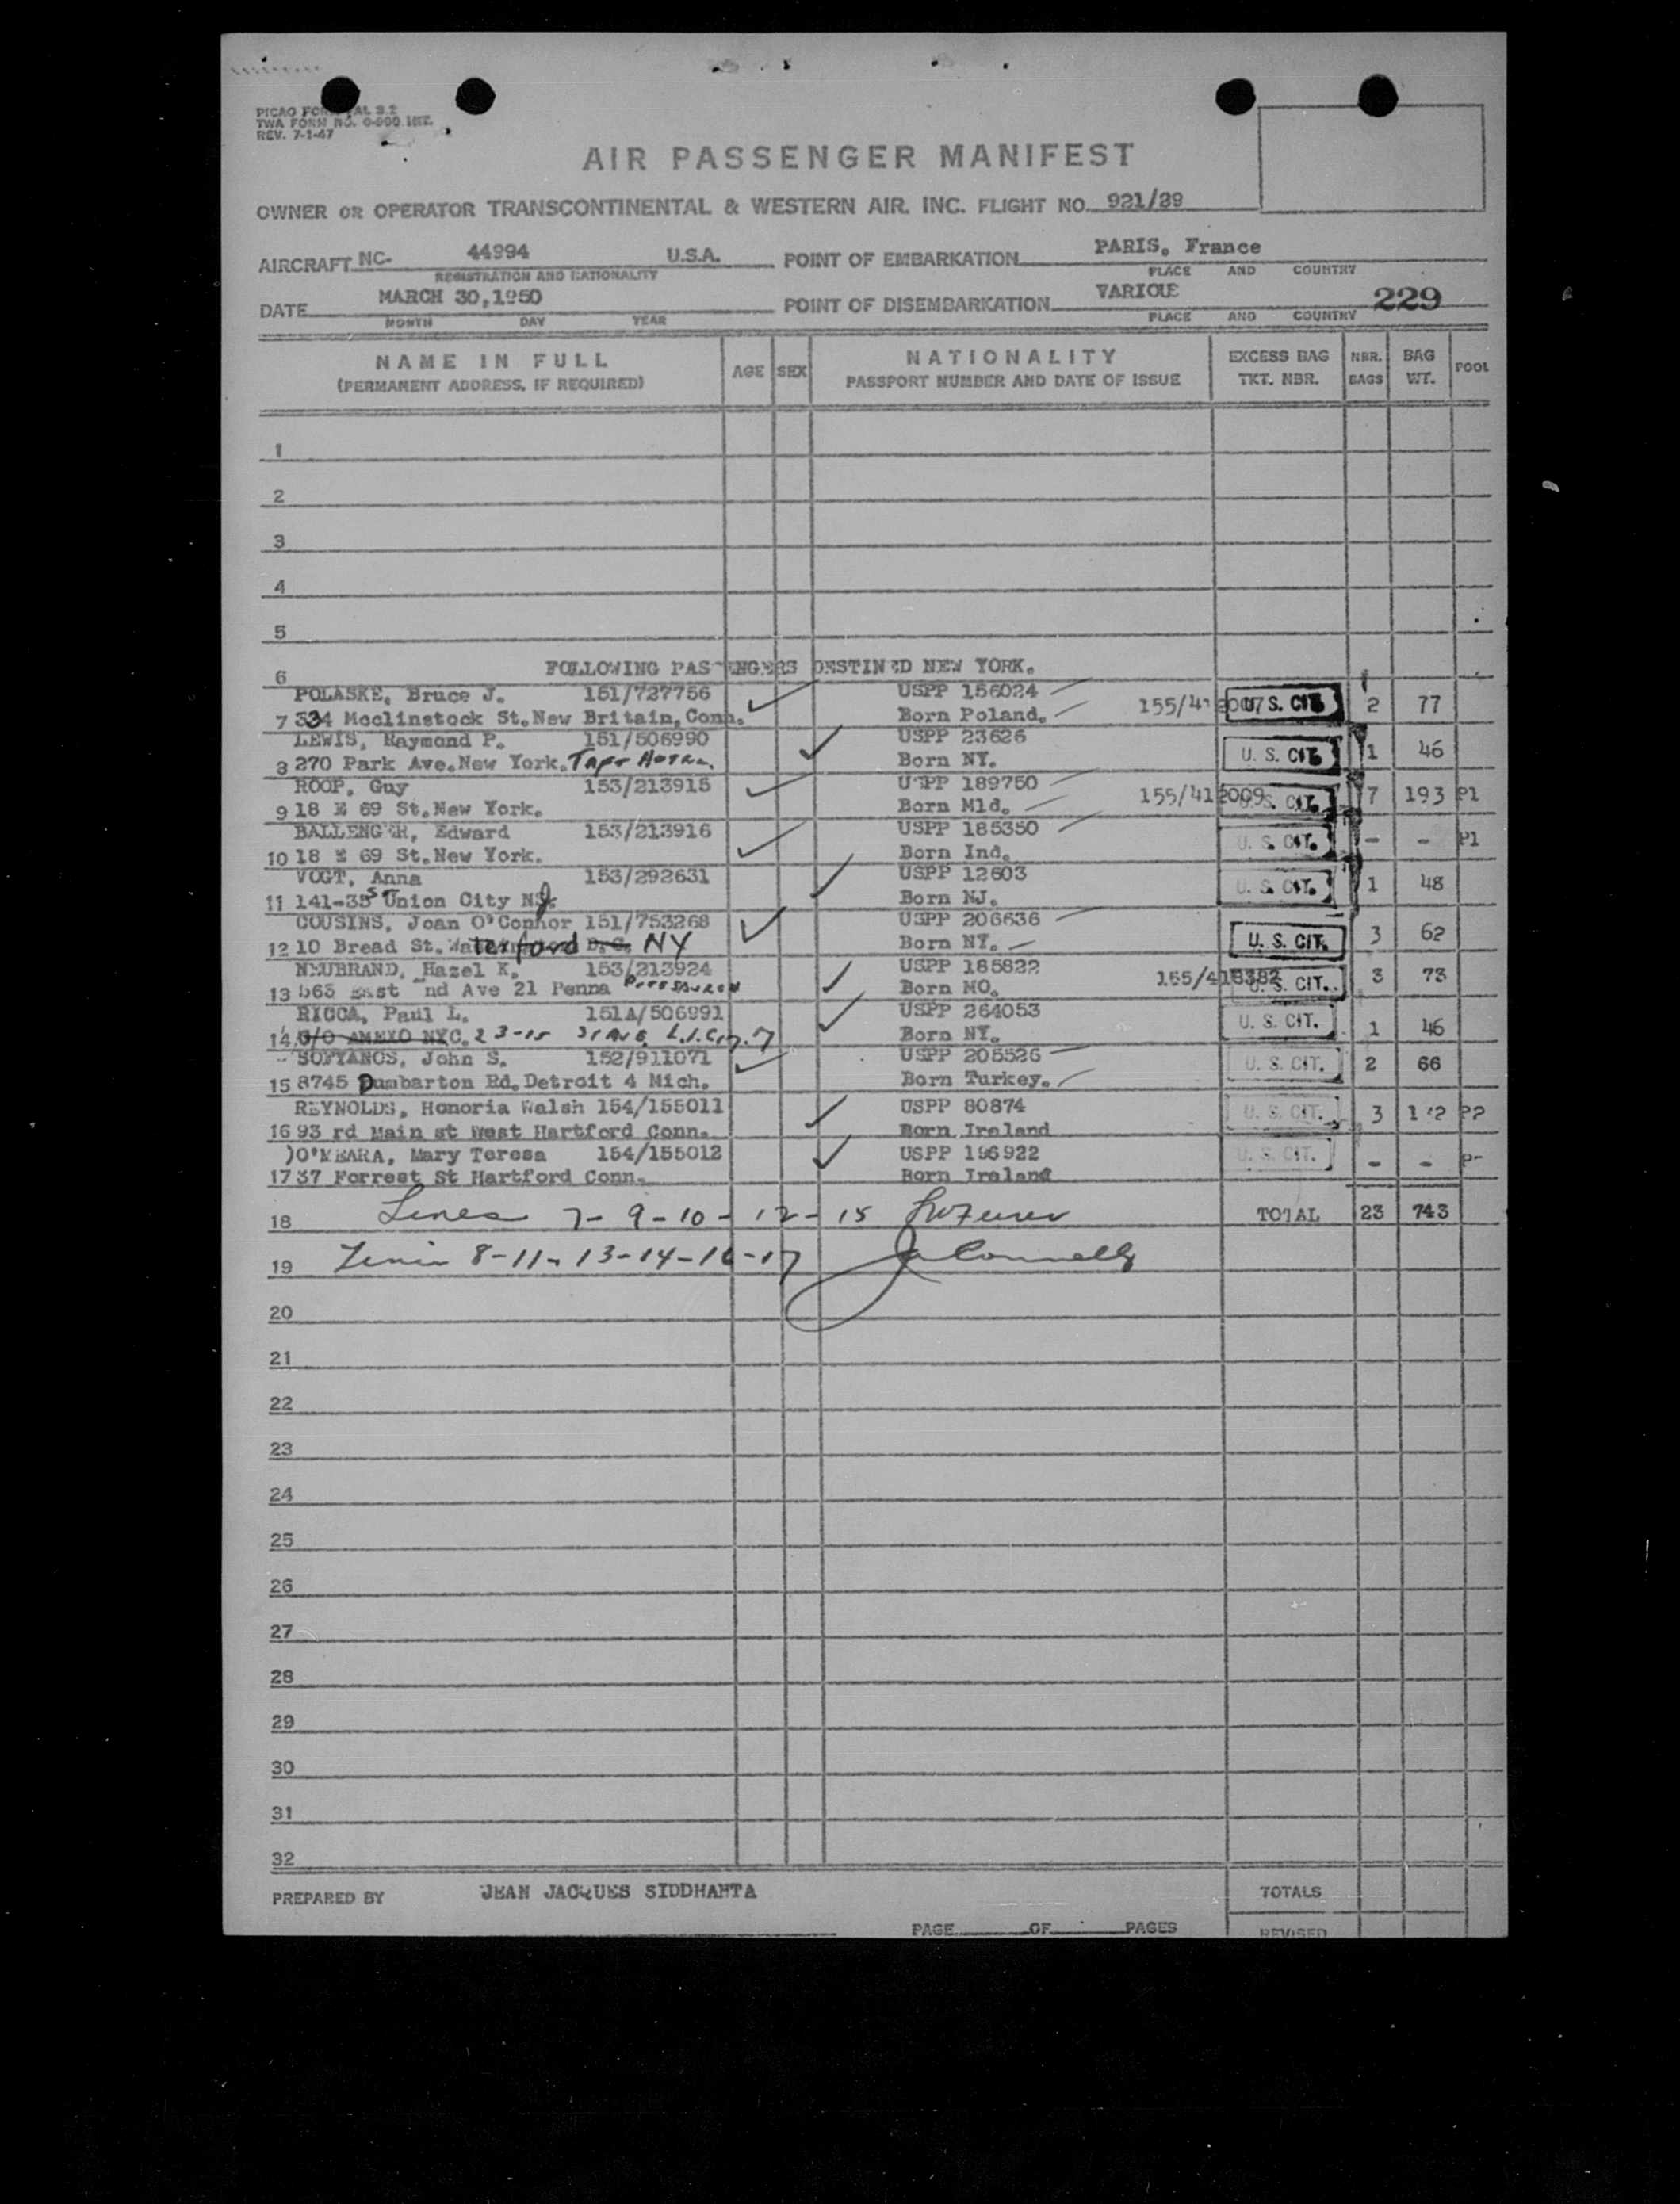 PICAO FOR AL 9.2
TWA FORM NO. 0-900 INT.
REV. 7-1-47
AIR PASSENGER MANIFEST
OWNER OR OPERATOR TRANSCONTINENTAL & WESTERN AIR. INC. FLIGHT NO. 921/29
AIRCRAFT NC- 44994 U.S.A. POINT OF EMBARKATION PARIS, France
REGISTRATION AND NATIONALITY PLACE AND COUNTRY
DATE MARCH 30,1950 POINT OF DISEMBARKATION VARIOUS 229
MONTH DAY YEAR PLACE AND COUNTRY
NAME IN FULL AGE SEX NATIONALITY EXCESS BAG NBR. BAG POOL
(PERMANENT ADDRESS, IF REQUIRED) PASSPORT NUMBER AND DATE OF ISSUE TKT. NBR. BAGS WT.
1
2
3
4
5
6 FOLLOWING PASSENGERS DESTINED NEW YORK.
POLASKE, Bruce J. 151/727756 USPP 156024
7 334 Mcclinstock St.New Britain, Conn. Born Poland. 155/412007 U. S. CIT. 2 77
LEWIS, Raymond P. 151/506990 USPP 23626
8 270 Park Ave.New York. Taft Hotel. Born NY. U. S. CIT. 1 46
ROOP, Guy 153/213915 USPP 189750
9 18 E 69 St.New York. Born Mld. 155/412009 U. S. CIT. 7 193 P1
BALLENGER, Edward 153/213916 USPP 185350
10 18 E 69 St.New York. Born Ind. U. S. CIT. - - P1
VOGT, Anna 153/292631 USPP 12603
11 141-35 St Union City NJ. Born NJ. U. S. CIT. 1 48
COUSINS, Joan O'Connor 151/753268 USPP 206636
12 10 Bread St. Waterford NY Born NY. U. S. CIT. 3 62
NEUBRAND, Hazel K. 153/213924 USPP 185822
13 563 East nd Ave 21 Penna Pittsburgh Born MO. 155/418382 U. S. CIT. 3 73
RICCA, Paul L. 151A/506991 USPP 264053
14 C/O AMEXO NYC. 23-15 31 Ave L.I.City. 7 Born NY. U. S. CIT. 1 46
SOFYANOS, John S. 152/911071 USPP 205526
15 8745 Dumbarton Rd.Detroit 4 Mich. Born Turkey. U. S. CIT. 2 66
REYNOLDS, Honoria Walsh 154/155011 USPP 80874
16 93 rd Main st West Hartford Conn. Born Ireland U. S. CIT. 3 P2
O'MEARA, Mary Teresa 154/155012 USPP 196922
17 37 Forrest St Hartford Conn. Born Ireland U. S. CIT. - -
18 Lines 7-9-10-12-15 TOTAL 23 743
19 Lines 8-11-13-14-16-17 Connelly
20
21
22
23
24
25
26
27
28
29
30
31
32
PREPARED BY JEAN JACQUES SIDDHARTA TOTALS
PAGE OF PAGES REVISED